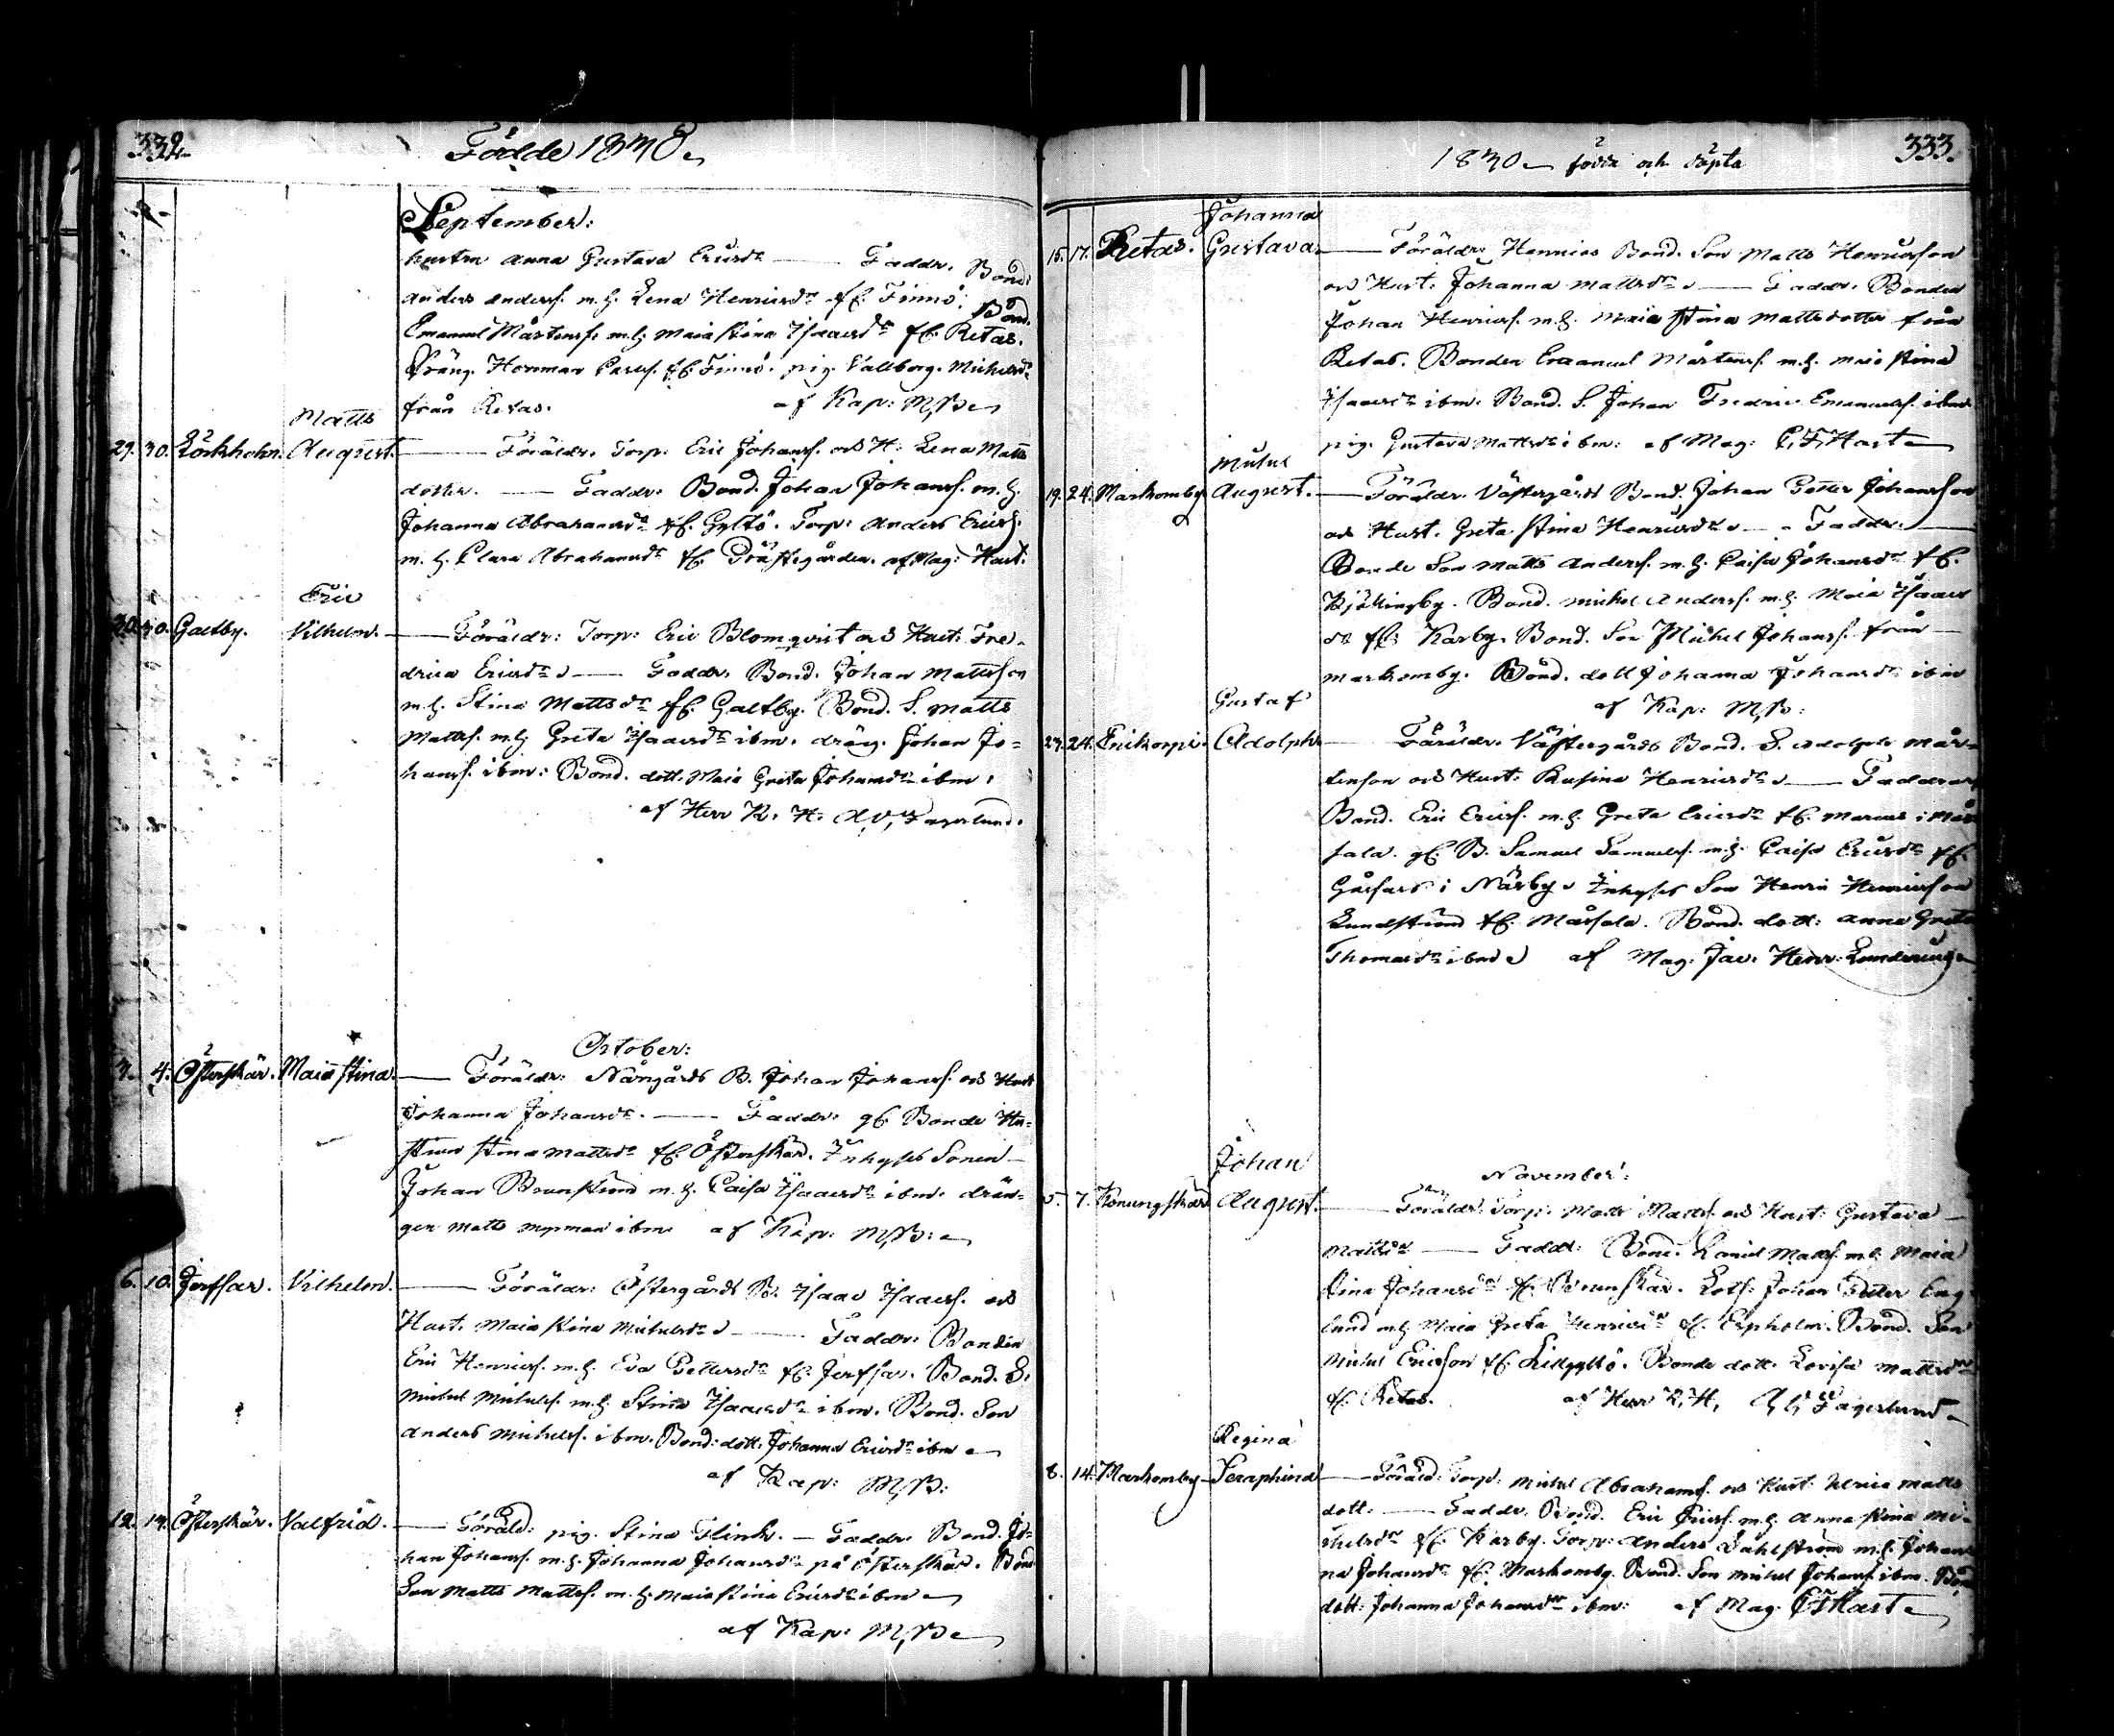 332
Födde 1830
September:
hustru Anna Gustava Ericsdr Faddr. Bond.
Anders Anders. m.h. Lena Henricsdr fr. Finnö. Bond.
Emanuel Mårtens. m.h. Maia Stina Isaacsdr fr. Retas.
Dräng. Herman Carls. fr. Finnö. pig. Vallborg. Michelsdr
från Retas. af Kap: M,B
Matts
29. 30. Lökholm. August. Föräldr. Torp. Eric Johans. och H: Lena Matts
dotter. Faddr: Bond. Johan Johans. m.h.
Johanna Abrahamsdr fr. Gyltö. Torp: Anders Erics.
m.h. Clara Abrahamsdr fr. Prästegården. af Mag: Hast.
Eric
30. 30. Galtby. Vilhelm. Föräldr: Torp: Eric Blomqvist och Hust: Fre-
drica Ericsdr Faddr. Bond. Johan Mattsson
m.h. Stina Mattsdr fr. Galtby. Bond. S. Matts
Matts. m.h. Greta Isaacsdr ibm. dräng. Johan Jo-
hans. ibm: Bond. dott. Maia Greta Johansdr ibm:
af Herr K. H. Fagerlund.
October:
3. 4. Österskär. Maia Stina. Föräldr: Nångårds B. Johan Johans. och Hust
Johanna Johansdr. Faddr: gl. Bonde Hu-
strun Stina Mattsdr fr. Österskär. Inhyses Sonen
Johan Brunström m.h. Caisa Isaacsdr ibm. drän-
gen Matts Nyman ibm af Kap: M,B:
6. 10. Jerfsar. Vilhelm. Föräldr: Östergårds B. Isaac Isaacs. och
Hust. Maia Stina Michelsdr Faddr: Bonden
Eric Henrics. m.h. Eva Pettersdr fr. Jerfsar. Bond. S.
Michel Michels. m.h. Stina Isaacsdr ibm. Bond. Son
Anders Michels. ibm. Bond: dott: Johanna Ericsdr ibm
af Kap: M,B:
12. 14. Österskär. Valfrid. Föräld: pig. Stina Flink. Faddr. Bond. Jo-
han Johans. m.h. Johanna Johansdr på Österskär. Bond
Son Matts Matts. m.h. Maia Stina Ericsdr ibm
af Kap: M,B
333.
1830 födda och döpta
Johanna
15. 17. Retas. Gustava. Föräldr: Hemmes Bond. Son Matts Henricsson
och Hust. Johanna Mattsdr Faddr. Bonden
Johan Henrics. m.h. Maia Stina Mattsdotter från
Retas. Bonden Emanuel Mårtens. m.h. Maia Stina
Isaacsdr ibm. Bond. S. Johan Fredric Emanuels. ibm
pig. Gustava Mattsdr ibm: af Mag: C,F, Hast
Michel
19. 24. Markomby August. Föräldr. Västergårds Bond. Johan Petter Johansson
och Hust. Greta Stina Henricsdr Faddr.
Bonde Son Matts Anders. m.h. Caisa Johansdr fr.
Kjökingby. Bond. Michel Anders. m.h. Maia Isaacs
dr fr: Karby. Bond. Son Michel Johans. från
Markomby. Bond. dott Johanna Johansdr ibm
af Kap: M,B:
Gustaf
23. 24. Adolph Föräldr. Västergårds Bond. S. Adolph Mår-
tenson och Hust: Rusina Henricsdr Faddrar
Bond. Eric Erics. m.h. Greta Ericsdr fr. Marcus i Mås
sala. gl. B. Samuel Samuels. m.h. Caisa Ericsdr fr.
i Närby. Inhyses Son Henric Henricsson
Lundström fr. Måssala. Bond. dott: Anna Greta
Thomasdr ibm af Mag. Jac. Henr.
Johan
November:
5. 7. Konungskär August. Föräldr. Torp. Matts Matts. och Hust: Gustava
Mattsdr Faddr: Bond. Daniel Matts. m.h. Maia
Stina Johansdr fr. Brunskär. Lots: Johan Petter Eng-
lund m.h. Maia Greta Henricsdr fr. Espholm. Bond. Son
Michel Ericsson fr. Lillgyltö. Bonde dott. Lovisa Mattsdr
fr. Retas. af Herr K, H, Fagerlund
Regina
8. 14. Markomby Seraphina Föräld: Torp: Michel Abrahams. och Hust. Ulrica Matts
dott: Faddr. Bond. Eric Erics. m.h. Anna Stina Mi-
chelsdr fr. Karby. Torp: Anders Dahlström m.h. Johan-
na Johansdr fr. Markomby. Bond. Son Michel Johans. ibm. Bond
dott: Johanna Johansdr ibm: af Mag. C F Hast